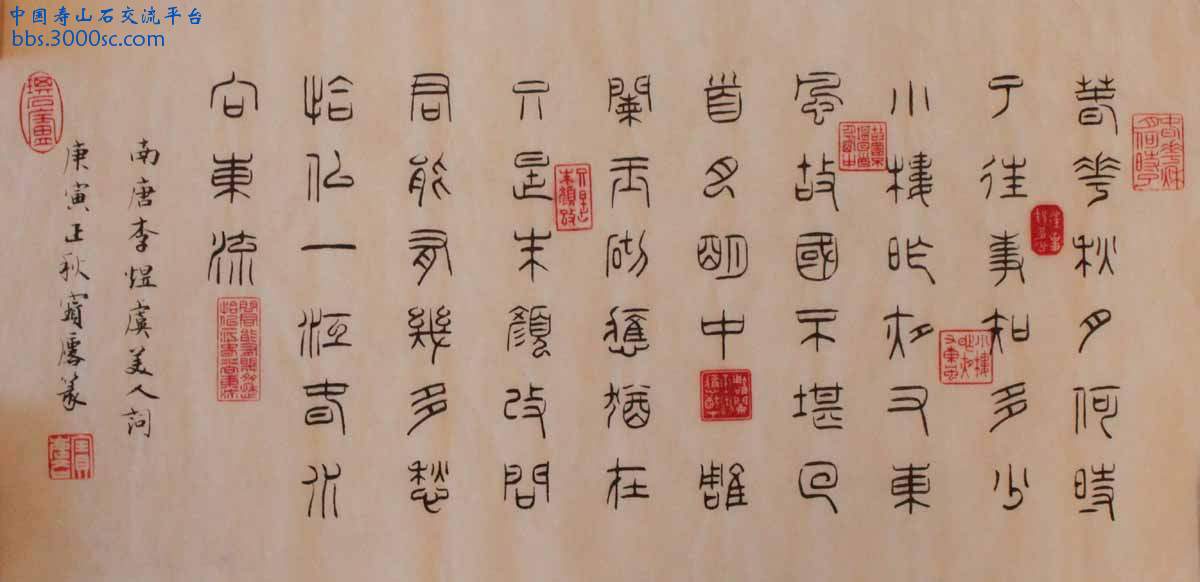 中国寿山石交流平台
bbs.3000sc.com
春花秋月何時
了往事知多少
小樓昨夜又東
風故國不堪回
首月明中雕
闌玉砌應猶在
只是朱顏改問
君能有幾多愁
恰似一江春水
向東流
南唐李煜虞美人詞
庚寅正秋篆
往事知多少
小樓昨夜又東風
只是朱顏改